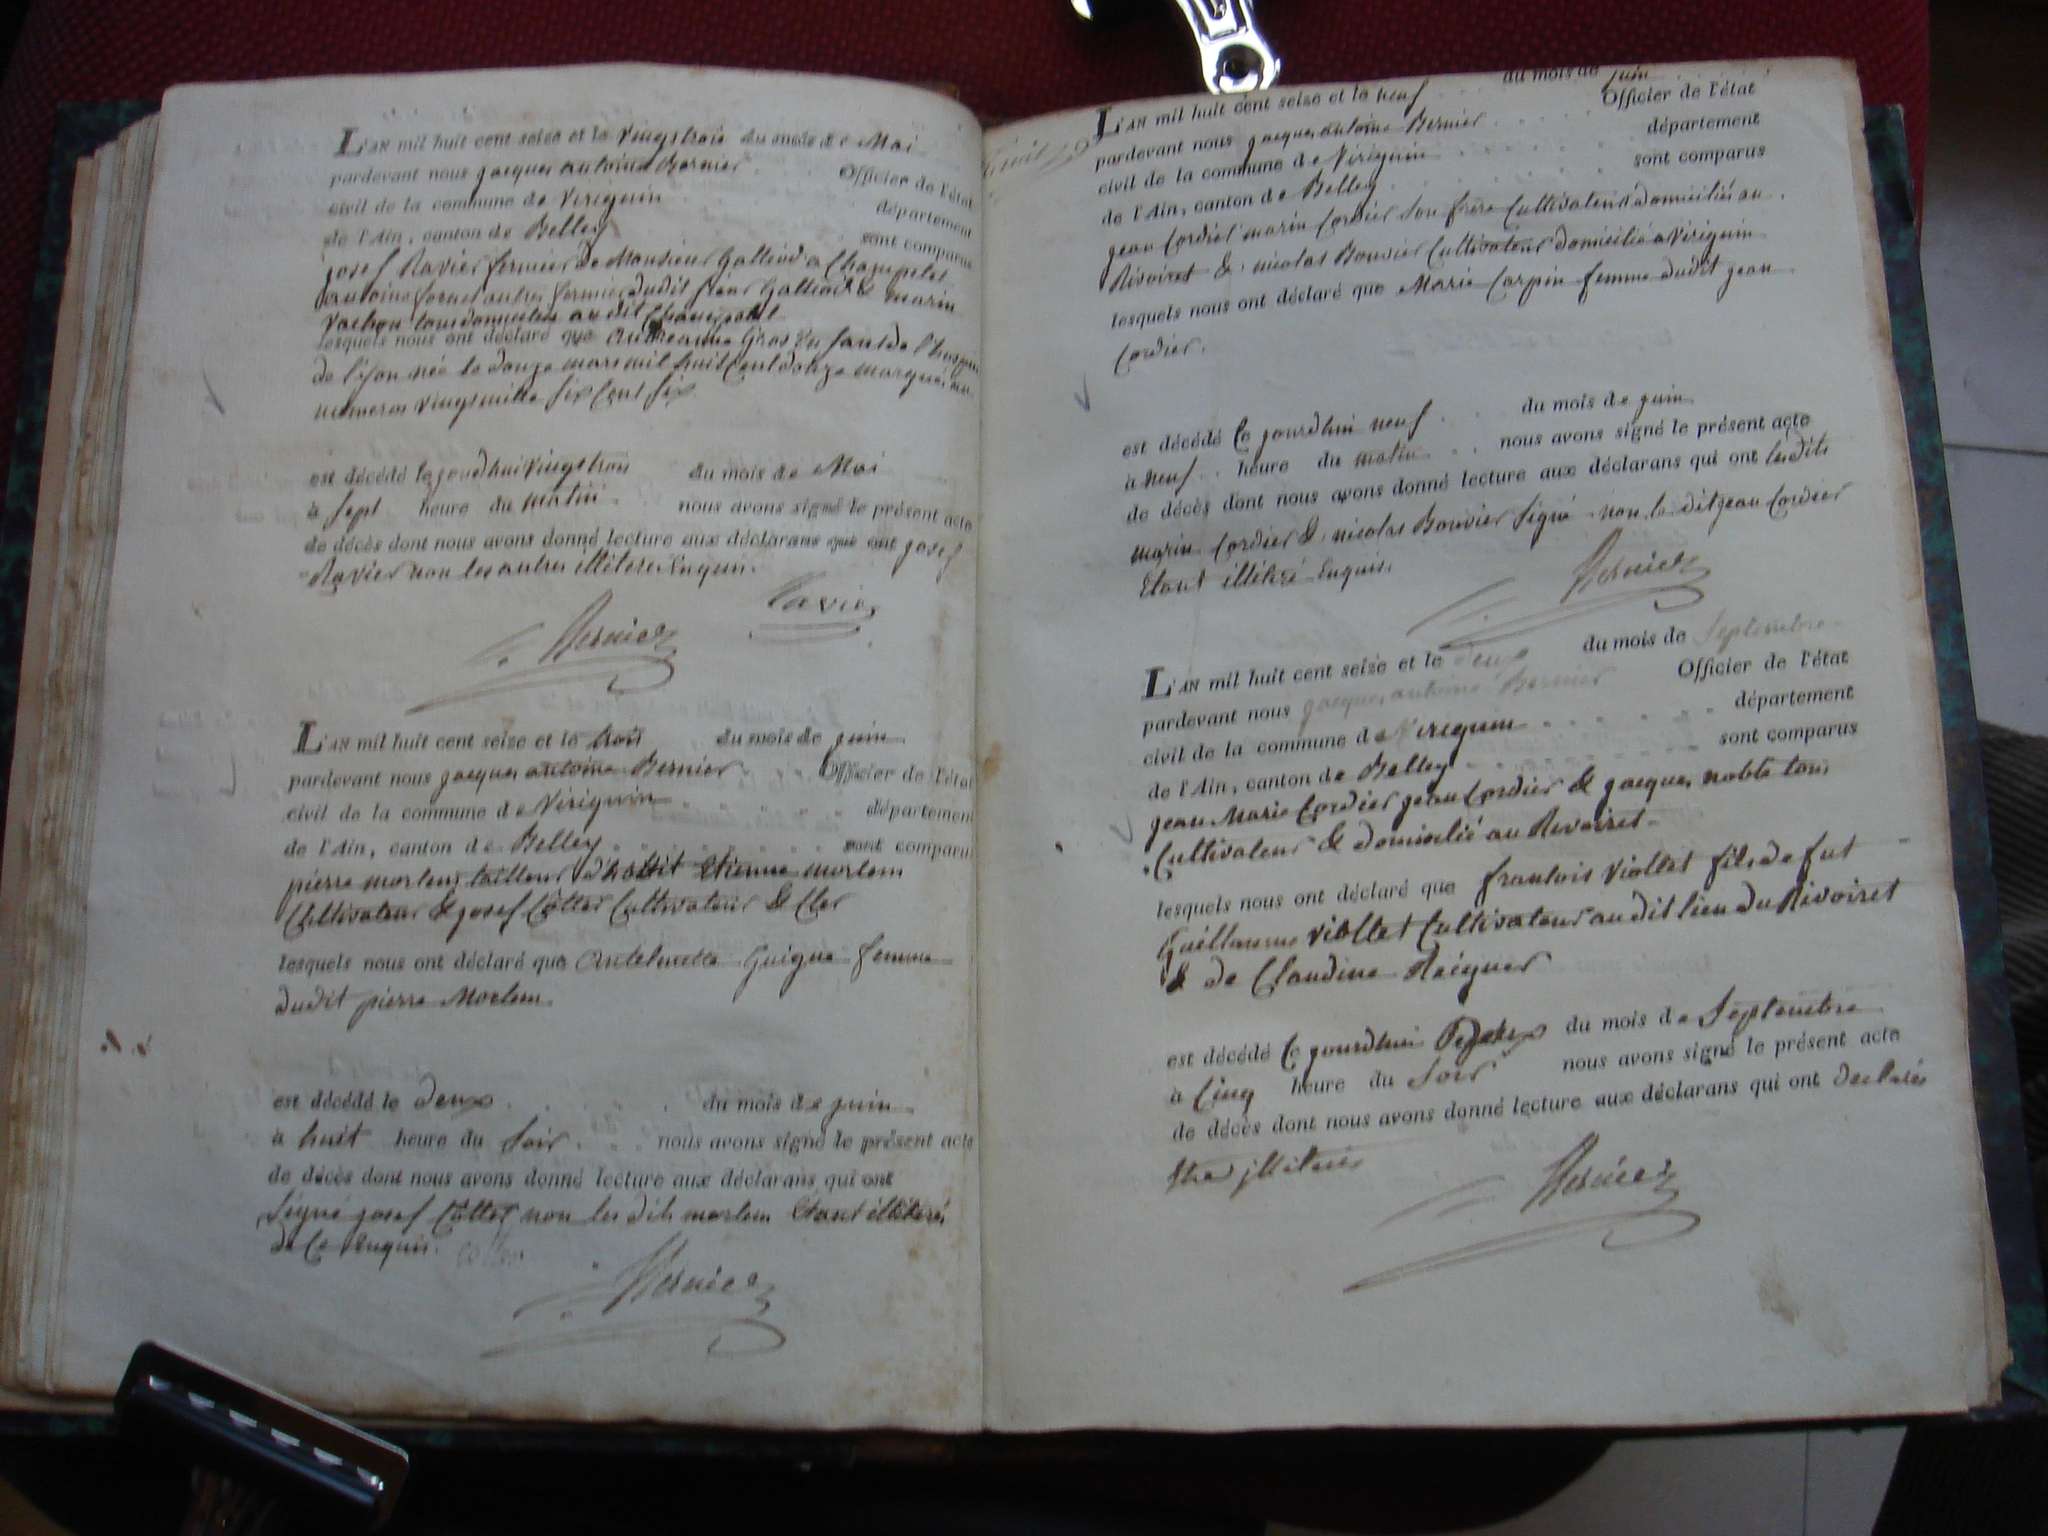 L'AN mil huit cent seize et le vingttrois du mois de Mai
pardevant nous jacques antoine Bernier Officier de l'état
civil de la commune de Virignin département
de l'Ain, canton de Belley sont comparus
josef Ravier fermier de Monsieur Galliod a Champolet
antoine autre fermier dudit sieur Galliod & marin
Vachon tous domicilies audit
lesquels nous ont déclaré que Gros Enfant de l'hospice
de Lyon née le douze mars mil huit cent douze marqué au
numeros vingtmille six cent six
est décédé le jourdhui vingttrois du mois de Mai
à sept heure du matin nous avons signé le présent acte
de décès dont nous avons donné lecture aux déclarans qui ont josef
Ravier non les autres illiteres Enquis.
Bernier Ravier
L'AN mil huit cent seize et le trois du mois de juin
pardevant nous jacques antoine Bernier Officier de l'état
civil de la commune de Virignin département
de l'Ain, canton de Belley sont comparus
pierre morlem tailleur d'habit Etienne morlem
Cultivateur & josef Cottet Cultivateur & Cler
lesquels nous ont déclaré que Antelmette Guigue femme
dudit pierre Morlem
est décédé le deux du mois de juin
à huit heure du soir nous avons signé le présent acte
de décès dont nous avons donné lecture aux déclarans qui ont
Signé josef Cottet non les dits morlem Etant illiteres
de Ce Enquis.
Bernier
L'AN mil huit cent seize et le neuf du mois de juin
pardevant nous jacques antoine Bernier Officier de l'état
civil de la commune de Virignin département
de l'Ain, canton de Belley sont comparus
jean Cordier marin Cordier son frère Cultivateurs domiciliés au
Rivoiret & nicolas Bouvier Cultivateur domicilié a Virignin
lesquels nous ont déclaré que Marie Carpin femme dudit jean
Cordier.
est décédé Ce jourdhui neuf du mois de juin
à neuf heure du matin nous avons signé le présent acte
de décès dont nous avons donné lecture aux déclarans qui ont lesdits
marin Cordier & nicolas Bouvier signé non le dit jean Cordier
Etant illitéré Enquis.
Bernier
L'AN mil huit cent seize et le deux du mois de Septembre
pardevant nous jacques antoine Bernier Officier de l'état
civil de la commune de Virignin département
de l'Ain, canton de Belley sont comparus
jean Marie Cordier jean Cordier & jacques noble tous
Cultivateur & domicilié au Rivoiret
lesquels nous ont déclaré que francois Viollet fils de fut
Guillaume Viollet Cultivateur au dit lieu du Rivoiret
& de Claudine Reignier
est décédé Ce jourdhui du mois de Septembre
à Cinq heure du soir nous avons signé le présent acte
de décès dont nous avons donné lecture aux déclarans qui ont declarés
Etre illiteres
Bernier